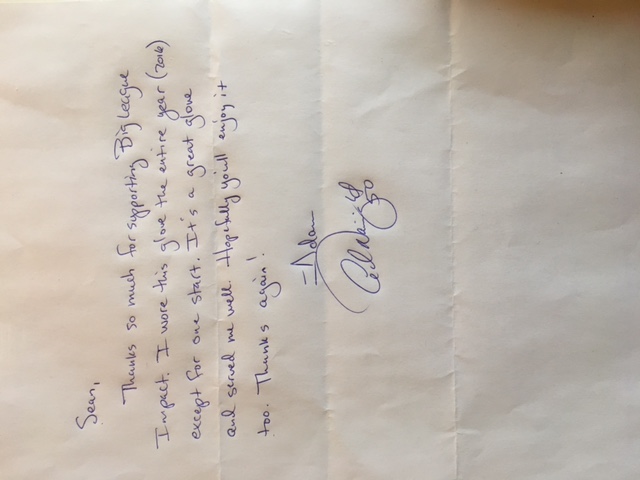 Sean,
Thanks so much for supporting Big League
Impact. I wore this glove the entire year (2016)
except for one start. It's a great glove
and served me well. Hopefully you'll enjoy it
too. Thanks again!
-Adam
50